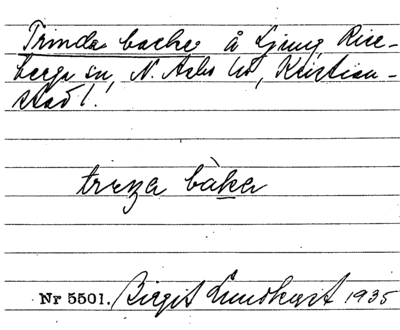 Trinda backe å Ljung, Rise-
berga sn, N. Åsbo hd, Kristian-
stads l.
backa
Nr 5501. Birgit Lundkvist 1935